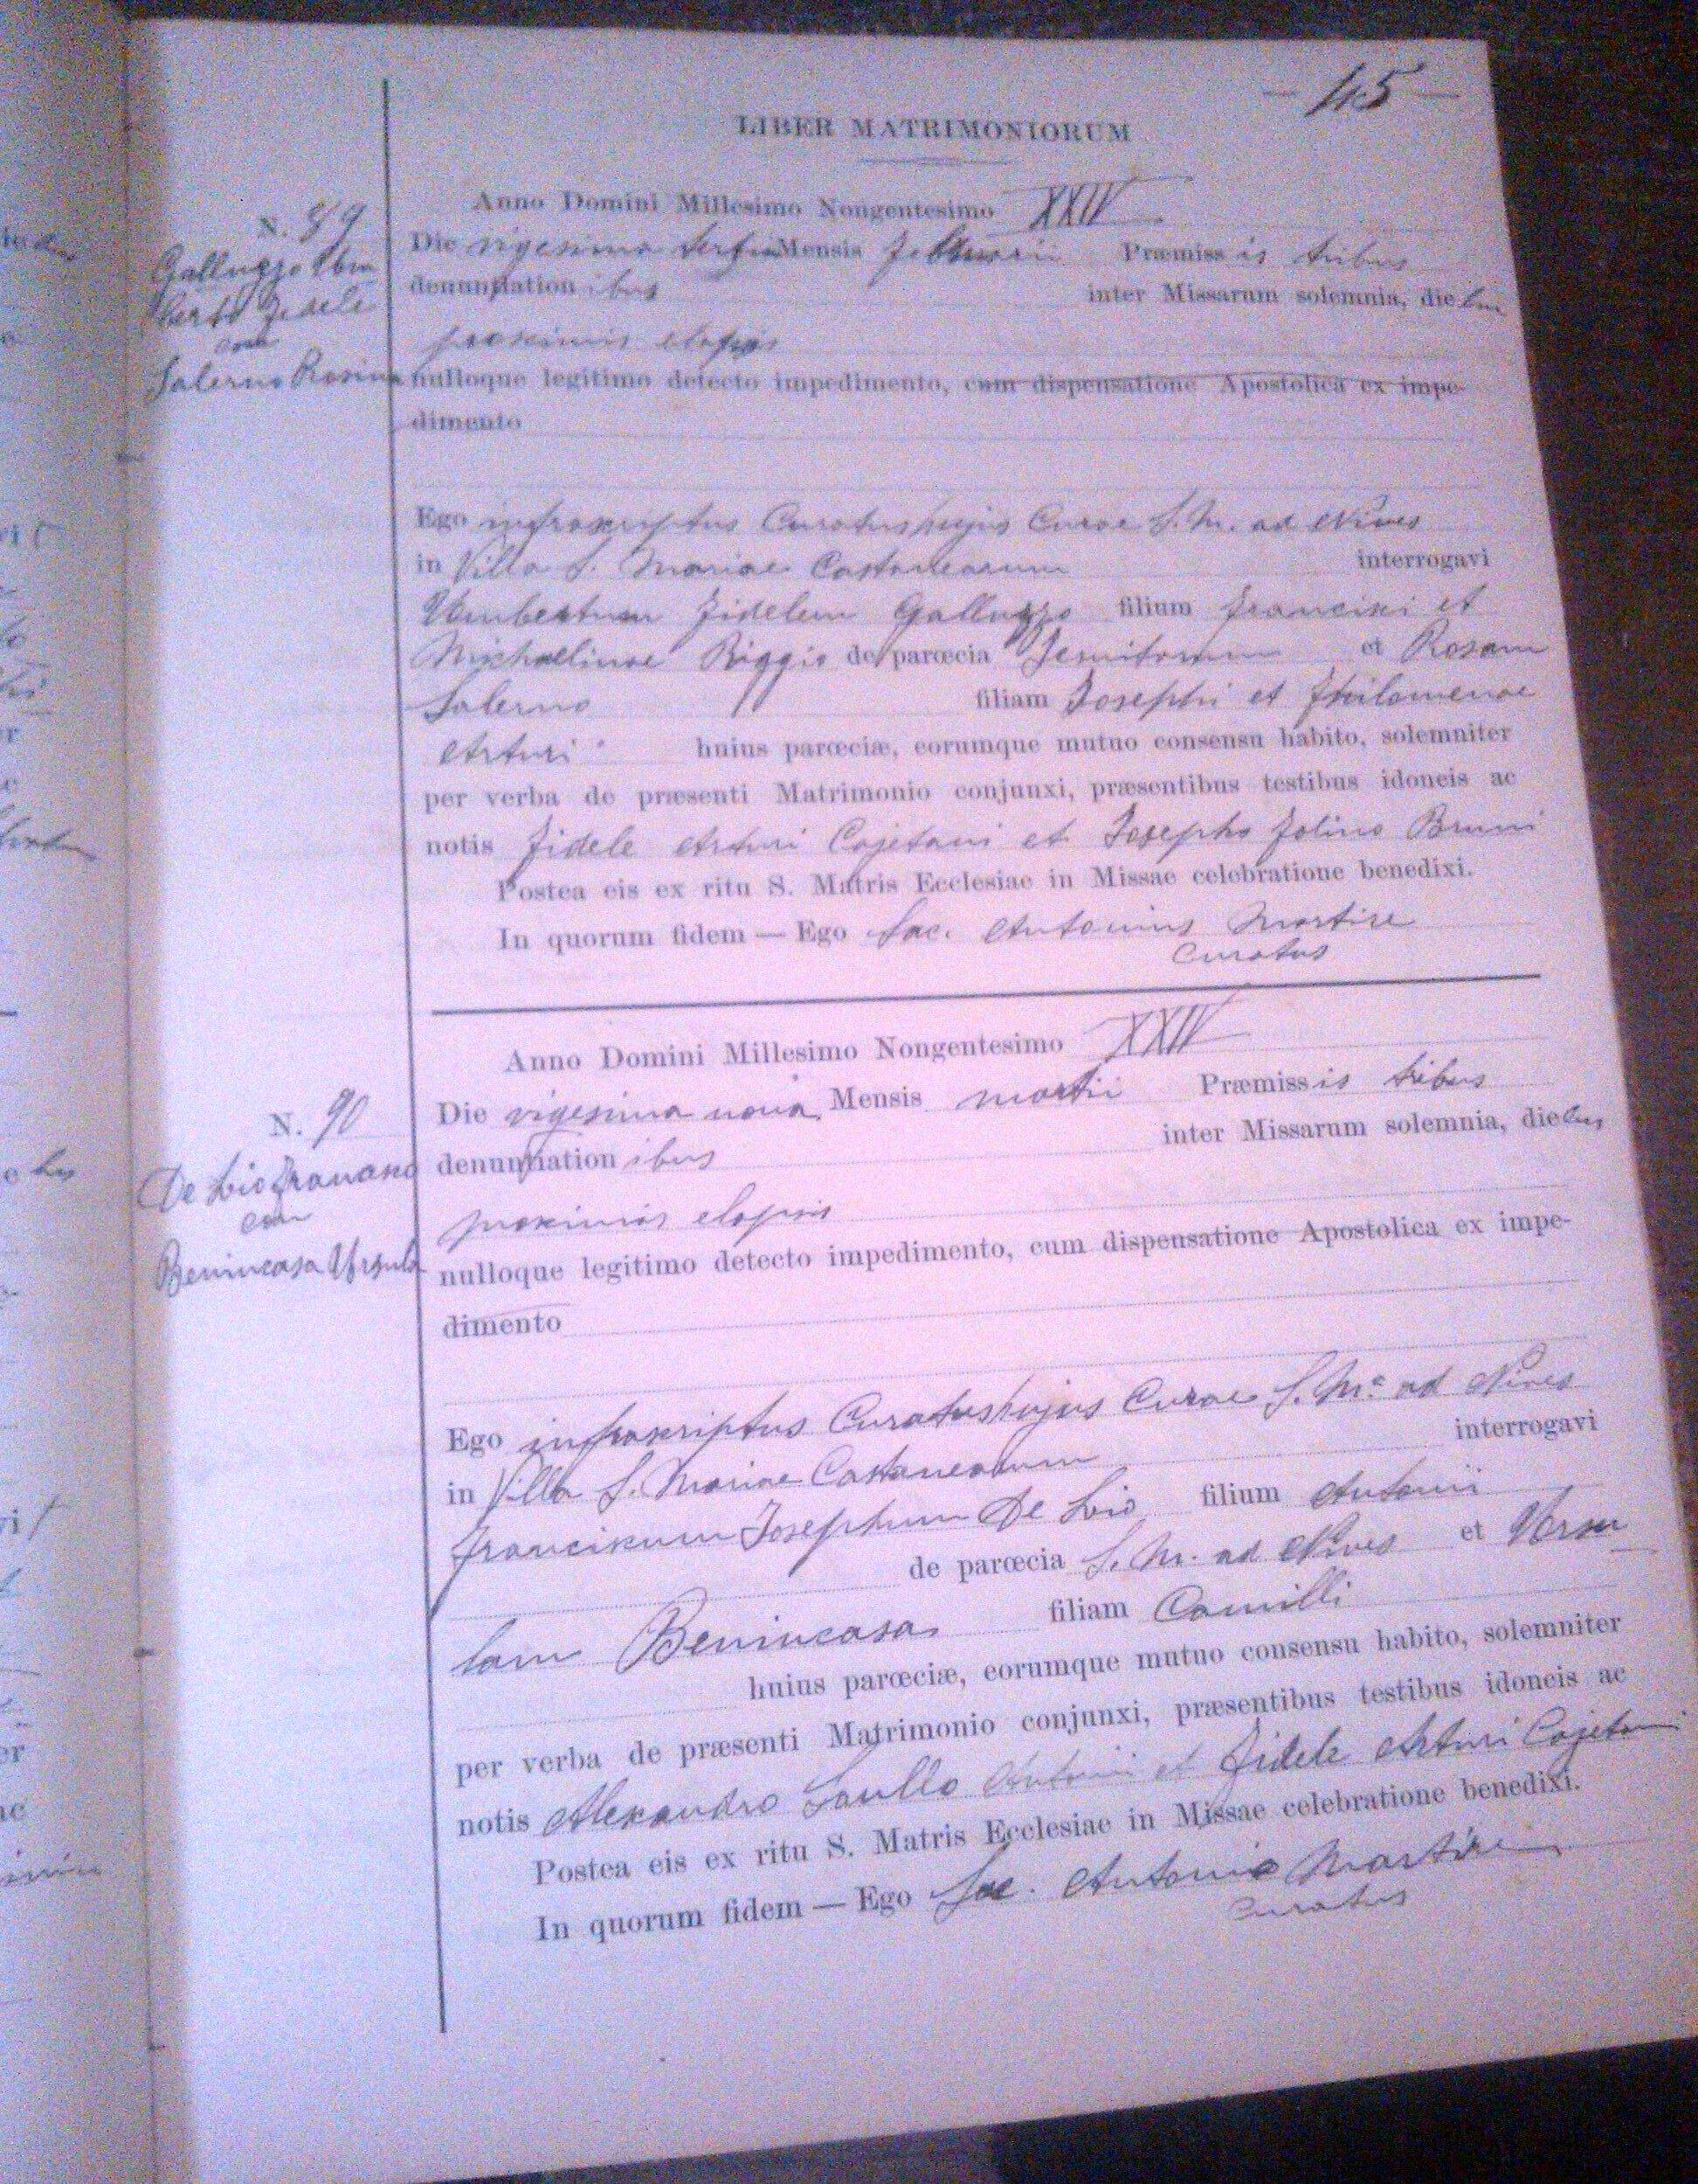 - 45 -
LIBER MATRIMONIORUM
N. 89
Galluzzo Um
berto Fidele
cum
Salerno Rosina
Anno Domini Millesimo Nongentesimo XXIV
Die vigesima tertia Mensis Februarii Præmissis tribus
denuntiationibus inter Missarum solemnia, diebus
proximis elapsis
nulloque legitimo detecto impedimento, cum dispensatione Apostolica ex impe-
dimento
Ego infrascriptus Curatus hujus Curae S. M. ad Nives
in Villa S. Mariae Castanearum interrogavi
Umbertum Fidelem Galluzzo filium Francisci et
Michaelinae Riggio de parœcia Jenuitorum et Rosam
Salerno filiam Josephi et Philomenae
Arturi huius parœciæ, eorumque mutuo consensu habito, solemniter
per verba de præsenti Matrimonio conjunxi, præsentibus testibus idoneis ac
notis Fidele Arturi Cajetani et Josepho Folino Bruni
Postea eis ex ritu S. Matris Ecclesiae in Missae celebratione benedixi.
In quorum fidem — Ego Sac. Antonius Martire
Curatus
N. 90
De Lio Franc
cum
Benincasa Ursula
Anno Domini Millesimo Nongentesimo XXIV
Die vigesima nona Mensis martii Præmissis tribus
denuntiationibus inter Missarum solemnia, diebus
proximis elapsis
nulloque legitimo detecto impedimento, cum dispensatione Apostolica ex impe-
dimento
Ego infrascriptus Curatus hujus Curae S. Mae ad Nives
in Villa S. Mariae Castanearum interrogavi
Franciscum Josephum De Lio filium Antonii
de parœcia S. M. ad Nives et Ursu
lam Benincasa filiam Camilli
huius parœciæ, eorumque mutuo consensu habito, solemniter
per verba de præsenti Matrimonio conjunxi, præsentibus testibus idoneis ac
notis Alexandro Saullo Antonii et Fidele Arturi Cajetani
Postea eis ex ritu S. Matris Ecclesiae in Missae celebratione benedixi.
In quorum fidem — Ego Sac. Antonio Martire
Curatus